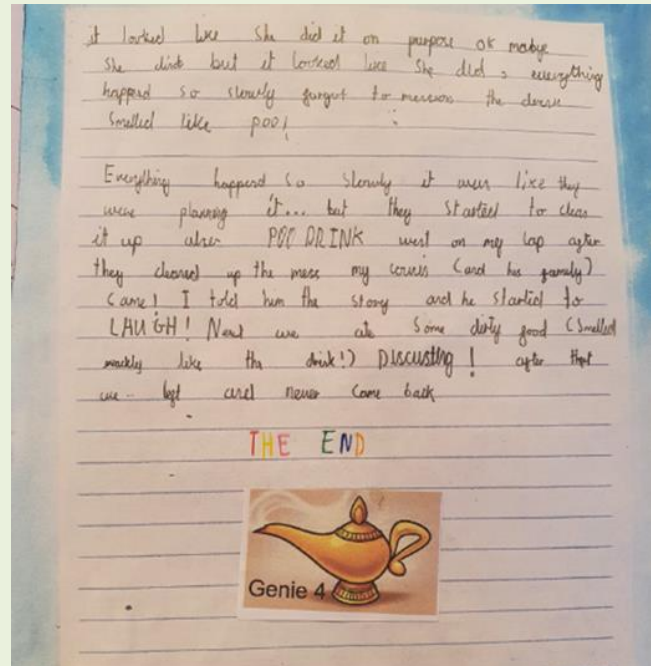 it looked like she did it on purpose ok mabye
she didnt but it looked like she did, everything
happend so slowly forgot to mension the drink
smelled like poo!
Everything happend so slowly it was like they
were planning it... but they started to clean
it up after POO DRINK went on my lap after
they cleaned up the mess my cousin (and his family)
came! I told him the story and he started to
LAUGH! Next we ate some dirty food (smelled
like the drink!) Discusting! after that
we left and never come back
THE END
Genie 4